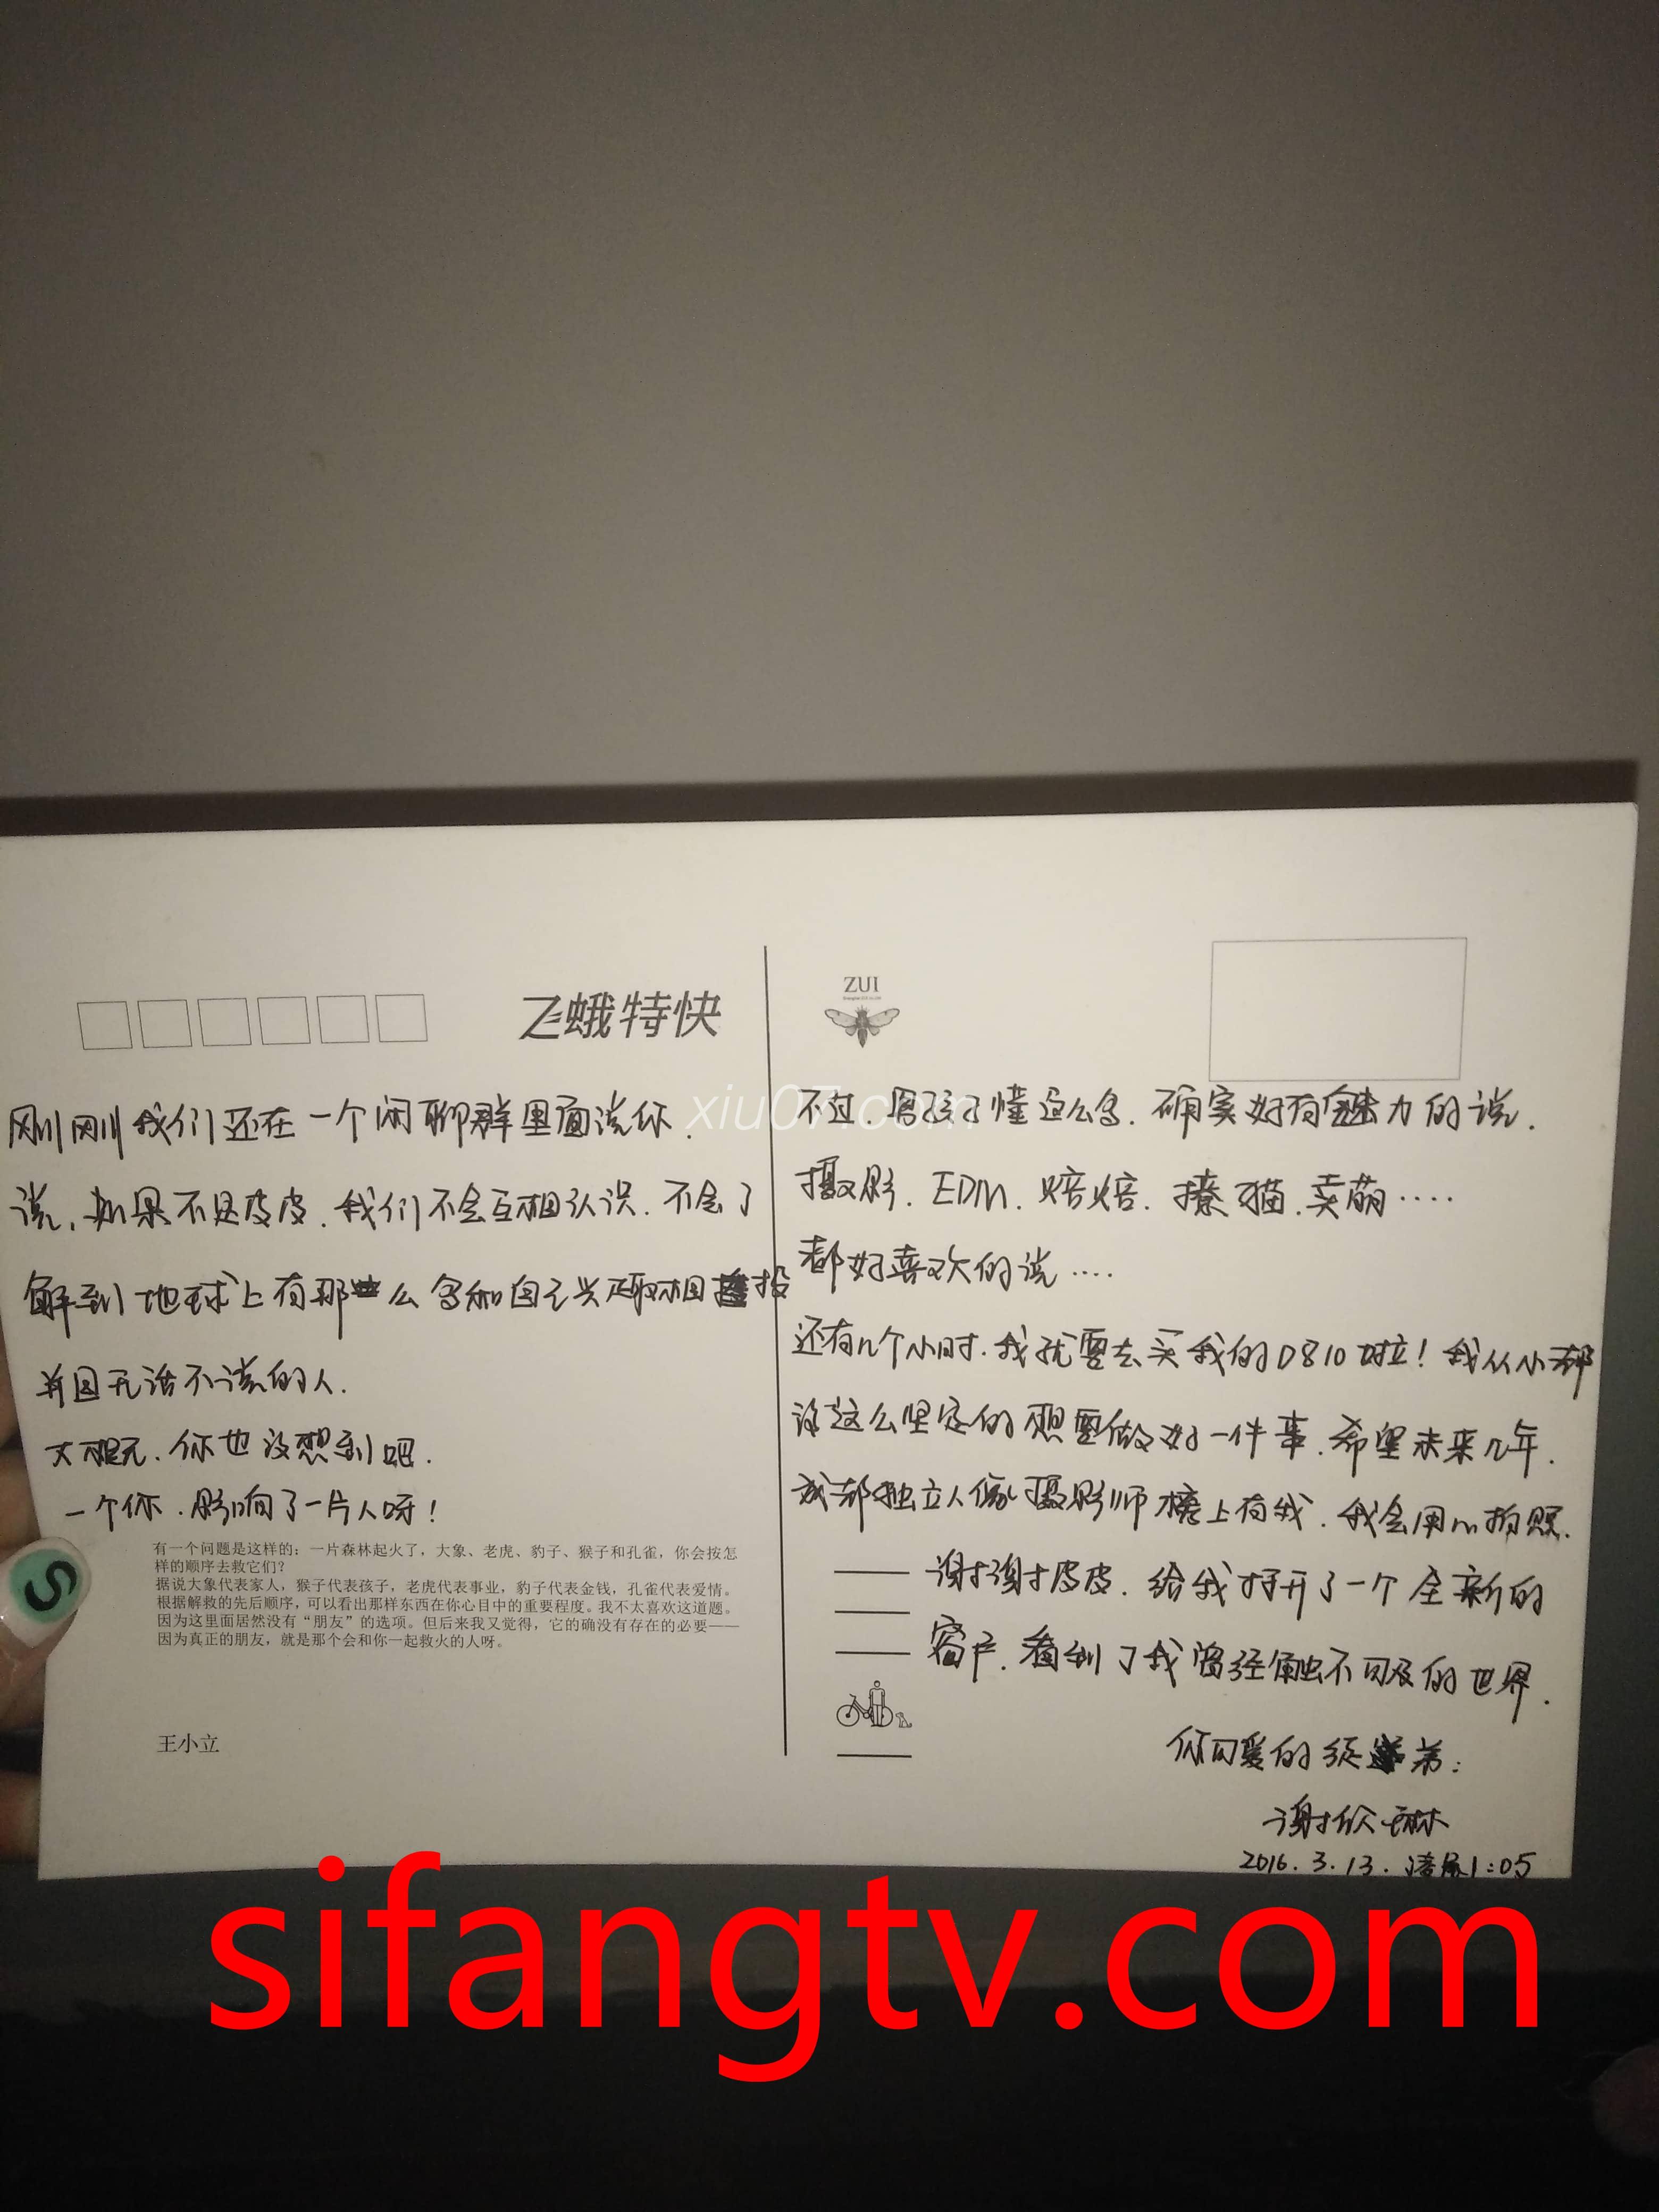 飞蛾特快
刚刚我们还在一个闲聊群里面说你.
说,如果不是皮皮.我们不会互相认识.不会了
解到地球上有那么多和自己兴趣相投
并且无话不说的人.
大概.你也没想到吧.
一个你.影响了一片人呀!
有一个问题是这样的：一片森林起火了，大象、老虎、豹子、猴子和孔雀，你会按怎
样的顺序去救它们？
据说大象代表家人，猴子代表孩子，老虎代表事业，豹子代表金钱，孔雀代表爱情。
根据解救的先后顺序，可以看出那样东西在你心目中的重要程度。我不太喜欢这道题。
因为这里面居然没有“朋友”的选项。但后来我又觉得，它的确没有存在的必要——
因为真正的朋友，就是那个会和你一起救火的人呀。
王小立
ZUI
xiu07.com
不过.男孩子懂这么多.确实好有魅力的说.
摄影. EDM. 焙焙. 撩猫.卖萌....
都好喜欢的说....
还有几个小时.我就要去买我的D810啦!我从小都
没这么坚定的想要做好一件事.希望未来几年.
成都独立人像摄影师榜上有我.我会用心拍照.
谢谢皮皮.给我打开了一个全新的
窗户.看到了我曾经触不可及的世界.
你可爱的徒弟:
谢伱琳
2016.3.13.凌晨1:05
sifangtv.com